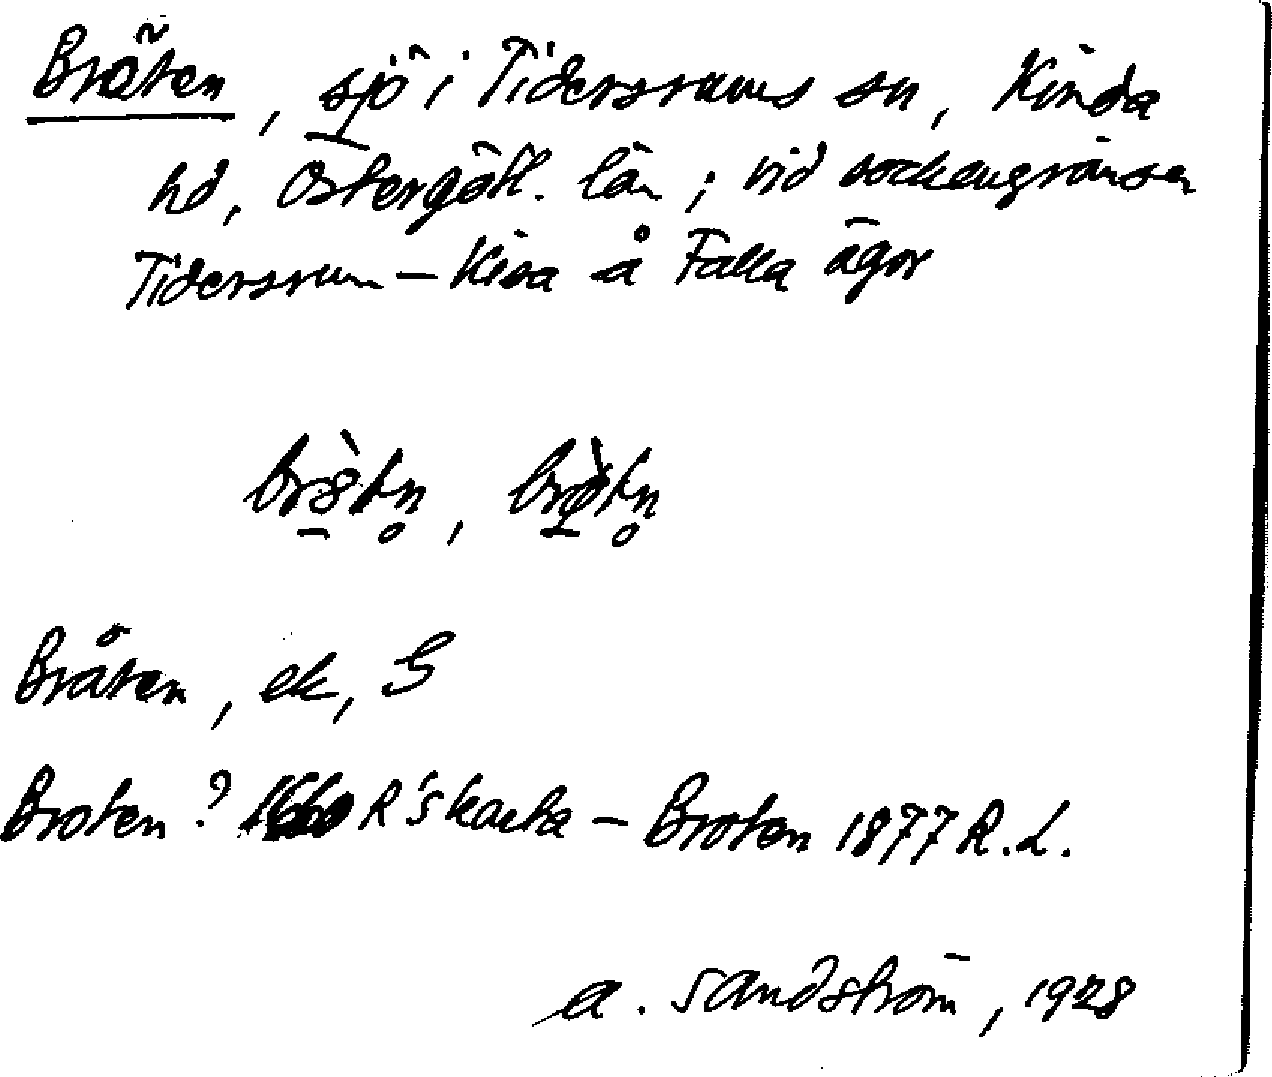 Bråten, sjö i Tidersrums sn, Kinda
hd, Östergötl. län; vid sockengränsen
Tidersrum – Kisa å Falla ägor
Bråten, ek, S
Broten? 1660 R's karta – Broten 1877 R.L.
A. Sandström, 1928